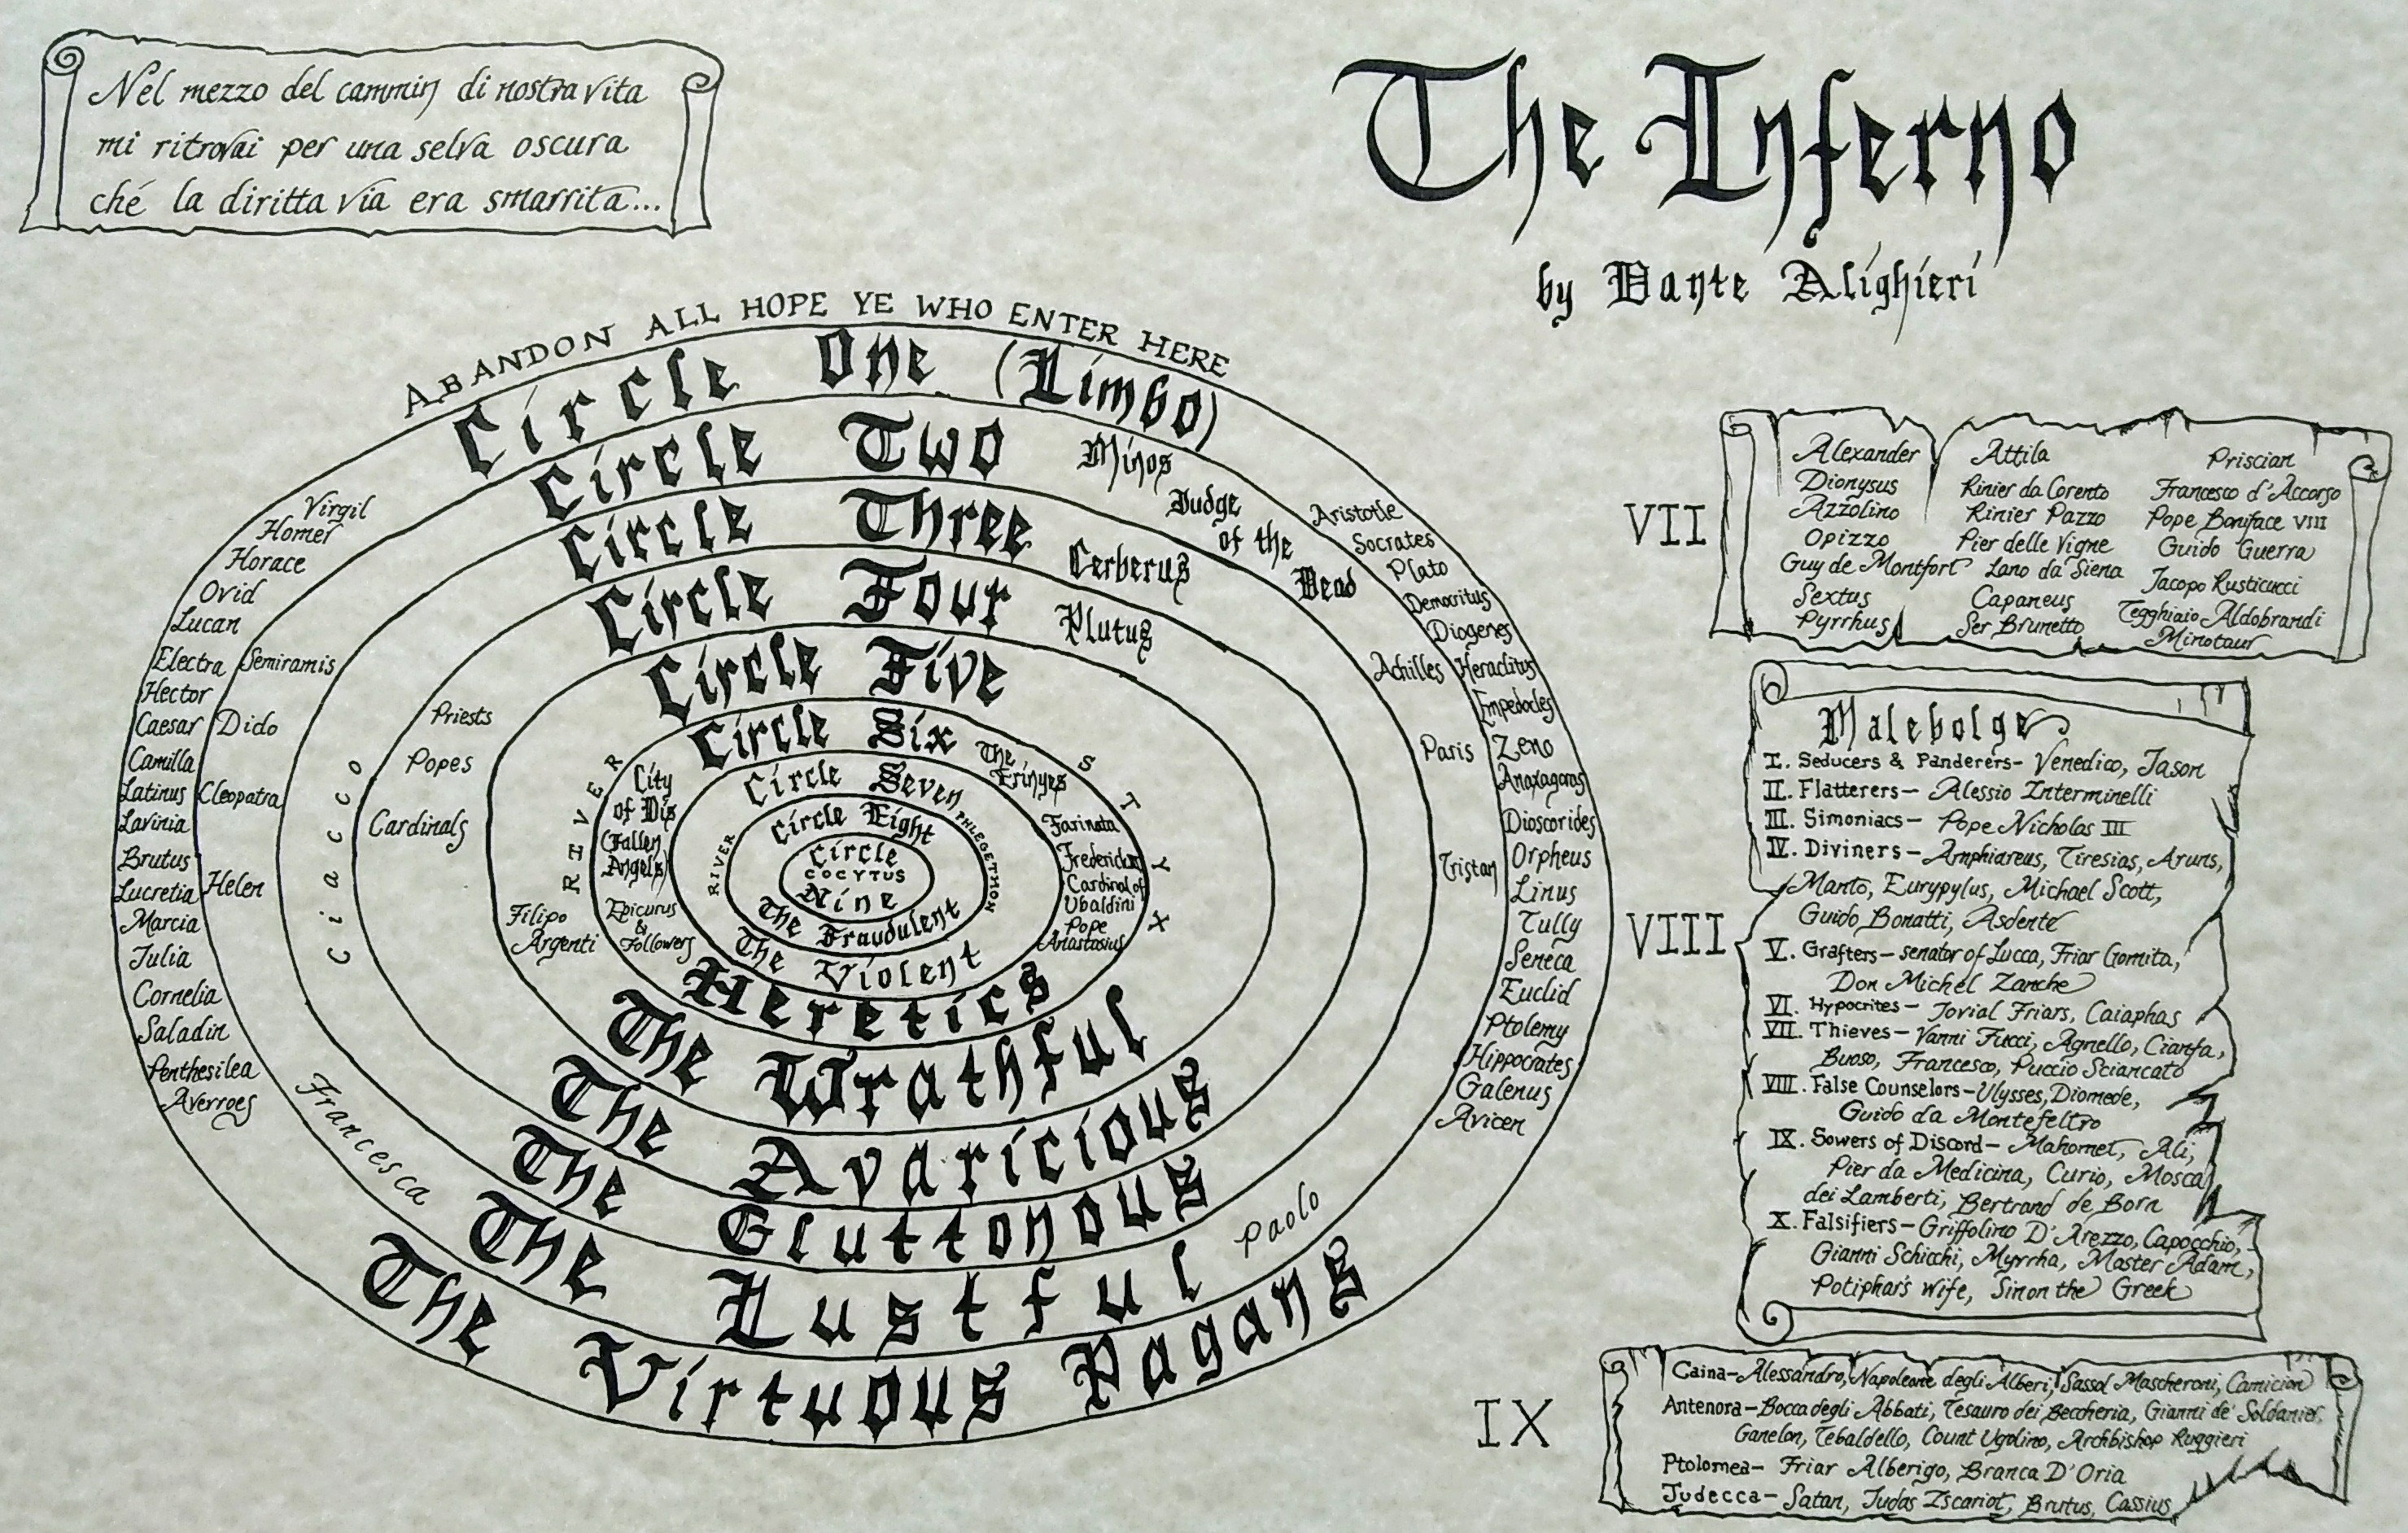 Nel mezzo del cammin di nostra vita
mi ritrovai per una selva oscura
ché la diritta via era smarrita...
The Inferno
by Dante Alighieri
ABANDON ALL HOPE YE WHO ENTER HERE
Circle One (Limbo)
Virgil
Homer
Horace
Ovid
Lucan
Electra
Hector
Caesar
Camilla
Latinus
Lavinia
Brutus
Lucretia
Marcia
Julia
Cornelia
Saladin
Penthesilea
Averroes
Aristotle
Socrates
Plato
Democritus
Diogenes
Heraclitus
Empedocles
Zeno
Anaxagoras
Dioscorides
Orpheus
Linus
Tully
Seneca
Euclid
Ptolemy
Hippocrates
Galenus
Avicen
The Virtuous Pagans
Circle Two
Minos
Judge
of the
Dead
Semiramis
Dido
Cleopatra
Helen
Achilles
Paris
Tristan
Francesca
Paolo
The Lustful
Circle Three
Cerberus
Ciacco
The Gluttonous
Circle Four
Plutus
Priests
Popes
Cardinals
The Avaricious
Circle Five
RIVER STYX
Filipo
Argenti
The Wrathful
Circle Six
The
Erinyes
City
of Dis
(Fallen
Angels)
Epicurus
&
Followers
Farinata
Frederick II
Cardinal of
Ubaldini
Pope
Anastasius
Heretics
Circle Seven
RIVER PHLEGETHON
The Violent
Circle Eight
The Fraudulent
Circle
COCYTUS
Nine
VII
Alexander
Dionysus
Azzolino
Opizzo
Guy de Montfort
Sextus
Pyrrhus
Attila
Rinier da Corento
Rinier Pazzo
Pier delle Vigne
Lano da Siena
Capaneus
Ser Brunetto
Priscian
Francesco d'Accorso
Pope Boniface VIII
Guido Guerra
Jacopo Rusticucci
Tegghiaio Aldobrandi
Minotaur
VIII
Malebolge
I. Seducers & Panderers- Venedico, Jason
II. Flatterers- Alessio Interminelli
III. Simoniacs- Pope Nicholas III
IV. Diviners- Amphiareus, Tiresias, Aruns,
Manto, Eurypylus, Michael Scott,
Guido Bonatti, Asdente
V. Grafters- senator of Lucca, Friar Gomita,
Don Michel Zanche
VI. Hypocrites- Jovial Friars, Caiaphas
VII. Thieves- Vanni Fucci, Agnello, Cianfa,
Buoso, Francesco, Puccio Sciancato
VIII. False Counselors-Ulysses, Diomede,
Guido da Montefeltro
IX. Sowers of Discord- Mahomet, Ali,
Pier da Medicina, Curio, Mosca
dei Lamberti, Bertrand de Born
X. Falsifiers- Griffolino D'Arezzo, Capocchio,
Gianni Schicchi, Myrrha, Master Adam,
Potiphar's Wife, Sinon the Greek
IX
Caina-Alessandro, Napoleone degli Alberi, Sassol Mascheroni, Camicion
Antenora-Bocca degli Abbati, Tesauro dei Beccheria, Gianni de' Soldanier,
Ganelon, Tebaldello, Count Ugolino, Archbishop Ruggieri
Ptolomea- Friar Alberigo, Branca D'Oria
Judecca- Satan, Judas Iscariot, Brutus, Cassius